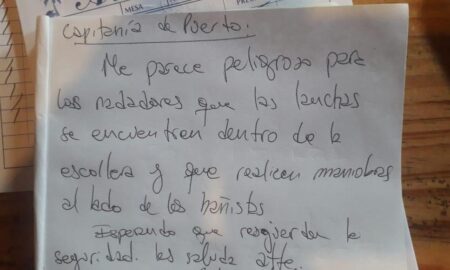 MESA
Capitanía de Puerto:
Me parece peligroso para
los nadadores que las lanchas
se encuentren dentro de la
escollera y que realicen maniobras
al lado de los bañistas
Esperando que resguarden la
seguridad. les saluda atte